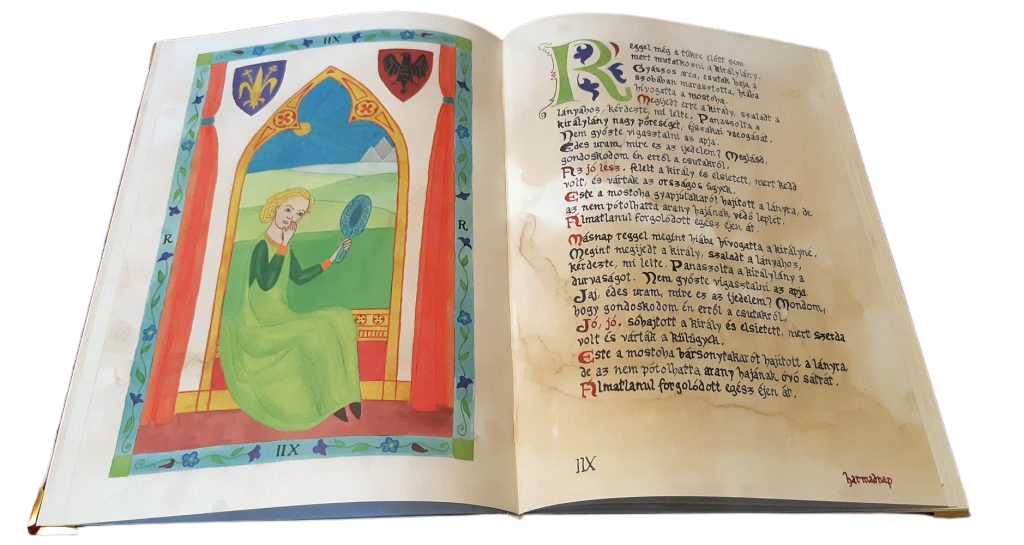 IIX
R
R
IIX
Reggel még a tükre előtt sem
mert mutatkozni a királylány.
Gyászos arca, csutak haja a
szobában marasztotta, hiába
hívogatta a mostoha.
Megijedt erre a király, szaladt a
lányához, kérdezte, mi lelte. Panaszolta a
királylány nagy pőreségét, éjszakai vacogását.
Nem győzte vigasztalni az apja.
Édes uram, mire ez az ijedelem? Meglásd,
gondoskodom én erről a csutakról.
Az jó lesz. felelt a király és elsietett, mert kedd
volt, és várták az országos ügyek.
Este a mostoha gyapjútakarót hajított a lányra, de
az nem pótolhatta arany hajának védő leplét.
Álmatlanul forgolódott egész éjen át.
Másnap reggel megint hiába hívogatta a királyné.
Megint megijedt a király, szaladt a lányához,
kérdezte, mi lelte. Panaszolta a királylány a
durvaságot. Nem győzte vigasztalni az apja
Jaj, édes uram, mire ez az ijedelem? Mondom,
hogy gondoskodom én erről a csutakról.
Jó, jó. sóhajtott a király és elsietett, mert szerda
volt és várták a külügyek.
Este a mostoha bársonytakarót hajított a lányra
de az nem pótolhatta arany hajának óvó sátrát.
Álmatlanul forgolódott egész éjen át.
IIX
harmadnap